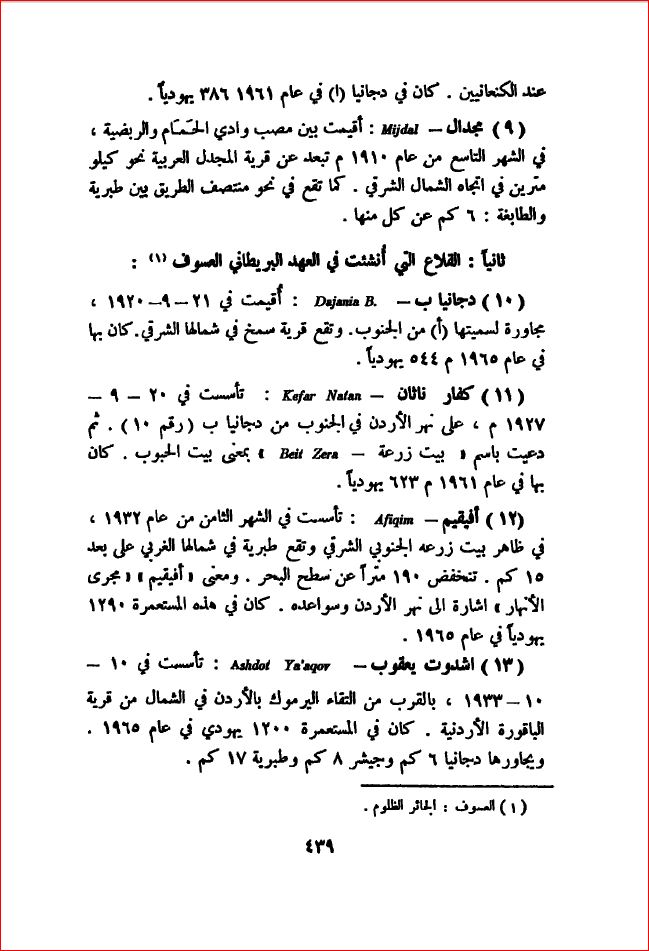 عند الكنعانيين . كان في دجانيا (ا) في عام ١٩٦١ ٣٨٦ يهودياً .
(٩) مجدال — Mijdal : أقيمت بين مصب وادي الحَمَام والربضية ،
في الشهر التاسع من عام ١٩١٠ م تبعد عن قرية المجدل العربية نحو كيلو
مترين في اتجاه الشمال الشرقي . كما تقع في نحو منتصف الطريق بين طبرية
والطابغة : ٦ كم عن كل منها .
ثانياً : القلاع التي أُنشئت في العهد البريطاني العسوف (١) :
(١٠) دجانيا ب — Dajania B. : أُقيمت في ٢١ — ٩— ١٩٢٠ ،
مجاورة لسميتها (أ) من الجنوب. وتقع قرية سمخ في شمالها الشرقي.كان بها
في عام ١٩٦٥ م ٥٤٤ يهودياً .
(١١) كفار ناثان — Kefar Natan : تأسست في ٢٠ — ٩ —
١٩٢٧ م ، على نهر الأردن في الجنوب من دجانيا ب (رقم ١٠) . ثم
دعيت باسم « بيت زرعة — Beit Zera » بمعنى بيت الحبوب . كان
بها في عام ١٩٦١ م ٦٢٣ يهودياً .
(١٢) أفيقيم — Afiqim : تأسست في الشهر الثامن من عام ١٩٣٢ ،
في ظاهر بيت زرعه الجنوبي الشرقي وتقع طبرية في شمالها الغربي على بعد
١٥ كم . تنخفض ١٩٠ متراً عن سطح البحر . ومعنى « أفيقيم » « مجرى
الأنهار » اشارة الى نهر الأردن وسواعده . كان في هذه المستعمرة ١٢٩٠
يهودياً في عام ١٩٦٥ .
(١٣) اشدوت يعقوب — Ashdot Ya'aqov : تأسست في ١٠ —
١٠ — ١٩٣٣ ، بالقرب من التقاء اليرموك بالأردن في الشمال من قرية
الباقورة الأردنية . كان في المستعمرة ١٢٠٠ يهودي في عام ١٩٦٥ .
ويجاورها دجانيا ٦ كم وجيشر ٨ كم وطبرية ١٧ كم .
(١) العسوف : الجائر الظلوم .
٤٣٩